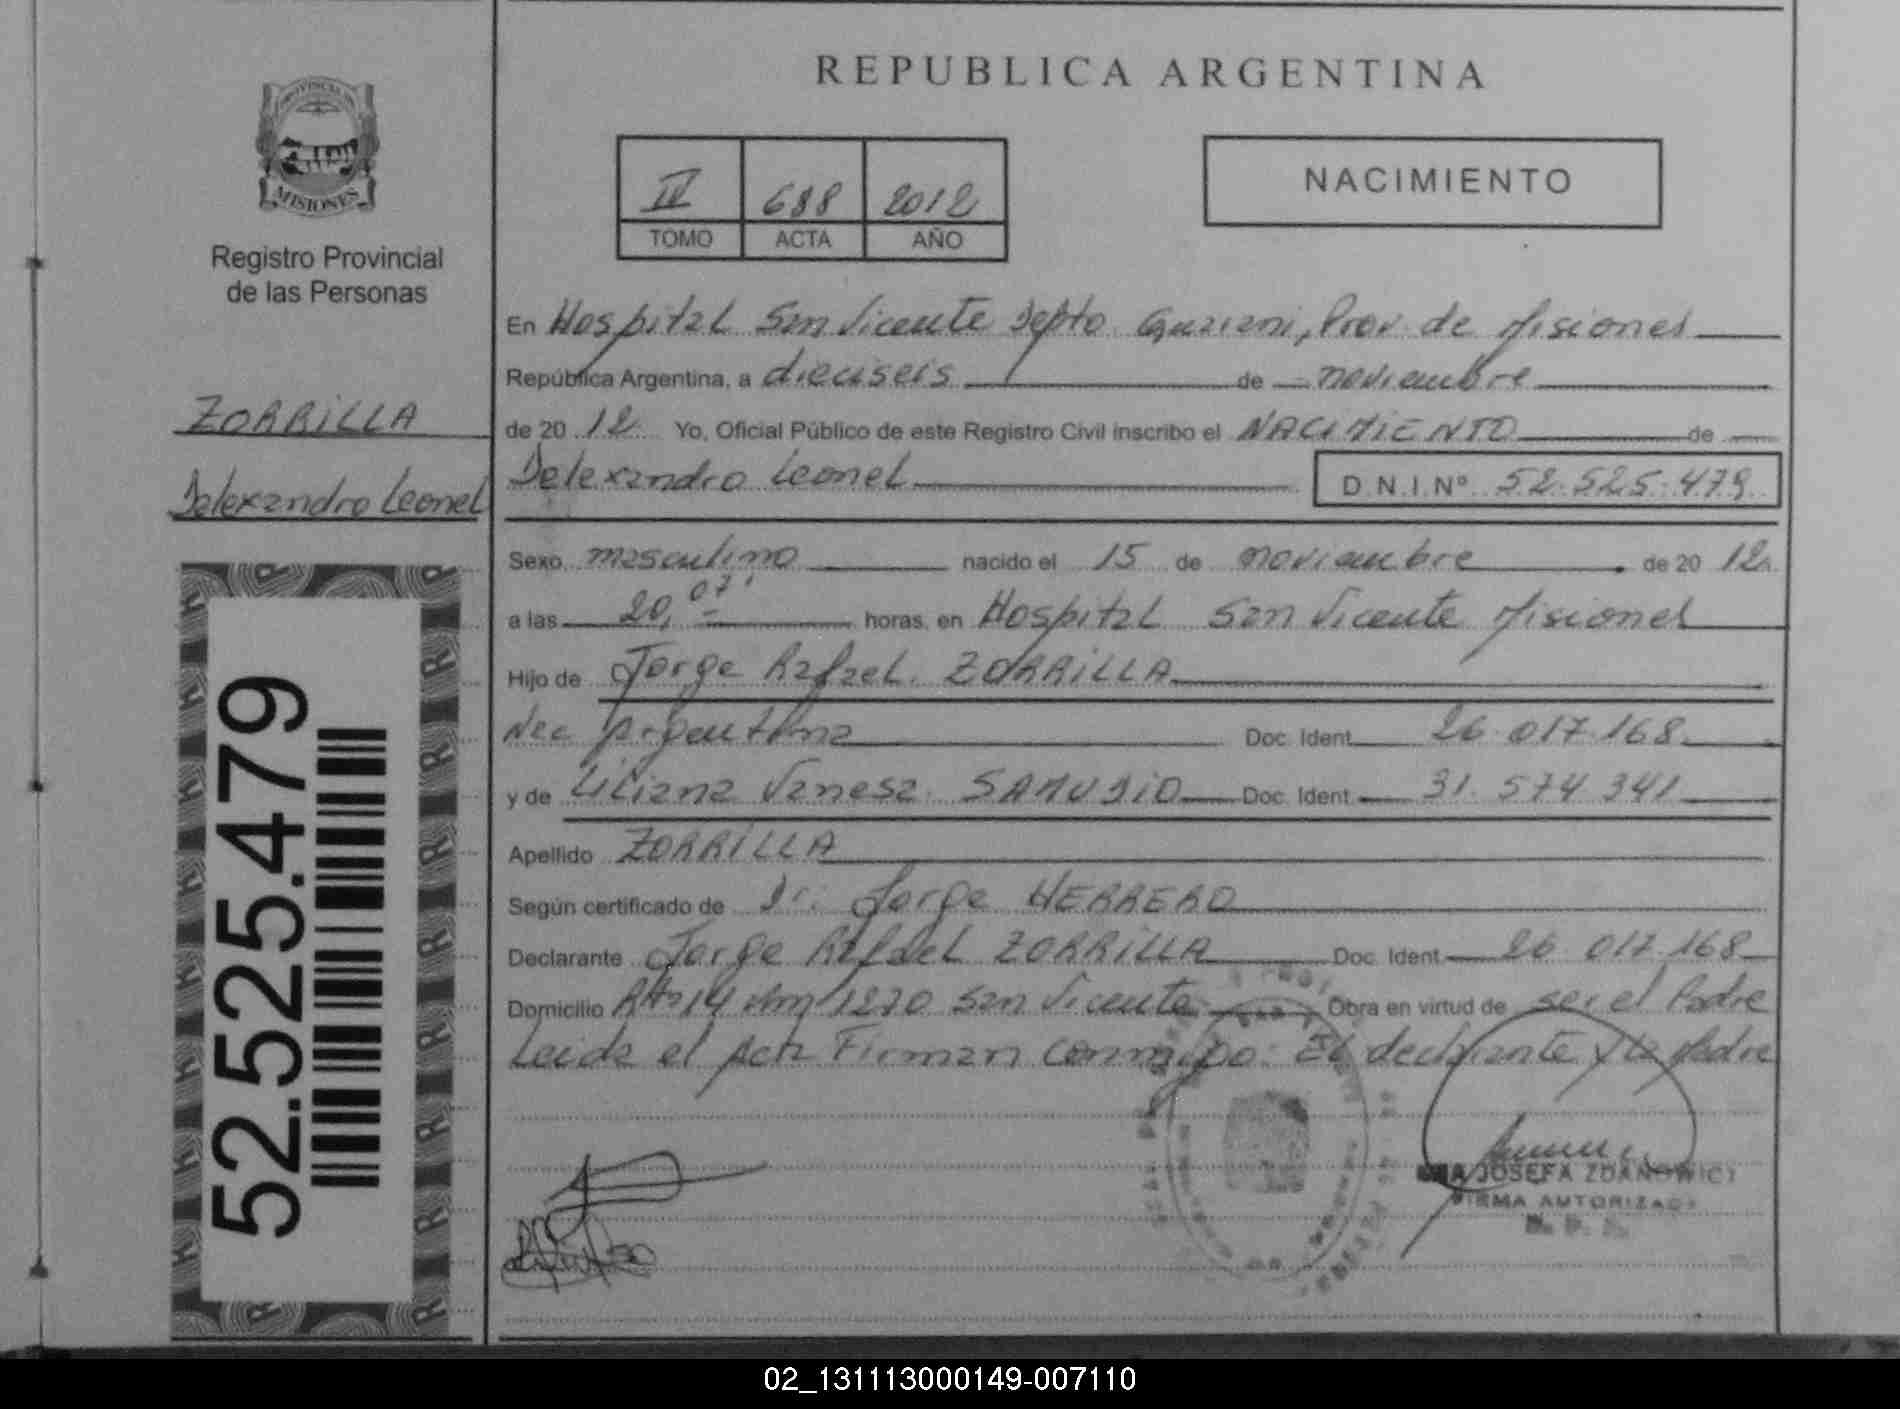 REPUBLICA ARGENTINA
PROVINCIA DE
MISIONES
Registro Provincial
de las Personas
IV 688 2012
TOMO ACTA AÑO
NACIMIENTO
En Hospital San Vicente Depto Guarani, Prov. de Misiones
República Argentina, a dieciseis de noviembre
ZORRILLA
de 20 12 Yo, Oficial Público de este Registro Civil inscribo el NACIMIENTO de
Delexandro Leonel
Delexandro Leonel D.N.I.Nº 52.525.479
Sexo masculino nacido el 15 de noviembre de 20 12
a las 20,07' horas, en Hospital San Vicente Misiones
Hijo de Jorge Rafael ZORRILLA
Nac Argentina Doc. Ident. 26.017.168
y de Liliana Vanesa SAMUDIO Doc. Ident. 31.574.341
Apellido ZORRILLA
Según certificado de Dr. Jorge HERRERO
Declarante Jorge Rafael ZORRILLA Doc. Ident. 26.017.168
Domicilio Rta 14 Km 1270 San Vicente Obra en virtud de ser el Padre
Leida el Acta Firman conmigo: El declarante y la Madre
52.525.479
JOSEFA ZDANOWICZ
FIRMA AUTORIZADA
02_131113000149-007110